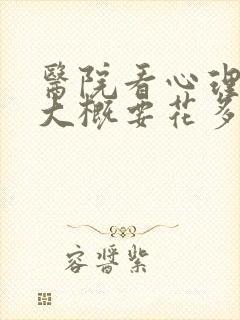 醫院看心理
大概要花多
容醬紫